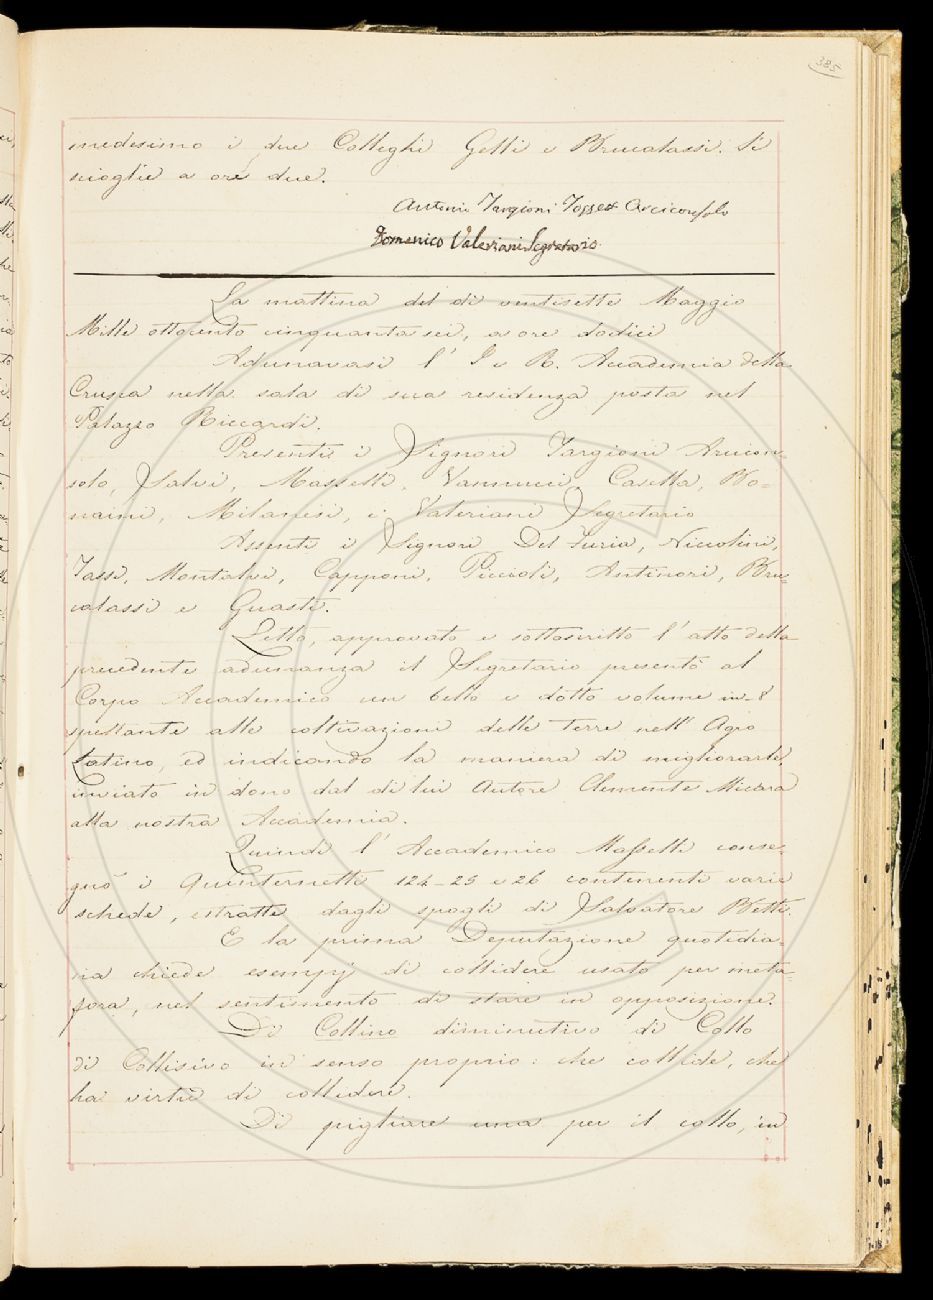 385
medesimo i due Colleghi Gelli e Brucalassi. Si
scioglie a ore due.
Antonio Targioni Tozzett Arciconsolo
Domenico Valeriani Segretario
La mattina del di ventisette Maggio
Mille ottocento cinquanta sei, a ore dodici
Adunavasi l' I e R. Accademia della
Crusca nella sala di sua residenza posta nel
Palazzo Riccardi.
Presenti i Signori Targioni Arcicon=
solo, Salvi, Masselli, Vannucci, Casella, Bo=
naini, Milanesi, e Valeriani Segretario
Assenti i Signori Del Furia, Niccolini,
Tassi, Montalvi, Capponi, Piccioli, Antinori, Bru=
calassi e Guasti.
Letto, approvato e sottoscritto l' atto della
precedente adunanza il Segretario presentò al
Corpo Accademico un bello e dotto volume in-8
spettante alle coltivazioni delle terre nell' Agro
Latino, ed indicando la maniera di migliorarle,
inviato in dono dal di lui Autore Clemente Micara
alla nostra Accademia.
Quindi l' Accademico Masselli conse=
gnò i Quinternetti 124-25 e 26 contenenti varie
schede, estratte dagli spogli di Salvatore Betti.
E la prima Deputazione quotidia=
na chiede esempj di collidere usato per meta=
fora, nel sentimento di stare in opposizione.
Di Collino diminutivo di Collo
di Collisivo in senso proprio: che collide, che
ha virtù di collidere.
Di pigliare una per il collo, in